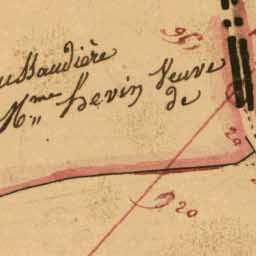 ussaudière
Mme hevin Veuve
de
20
20